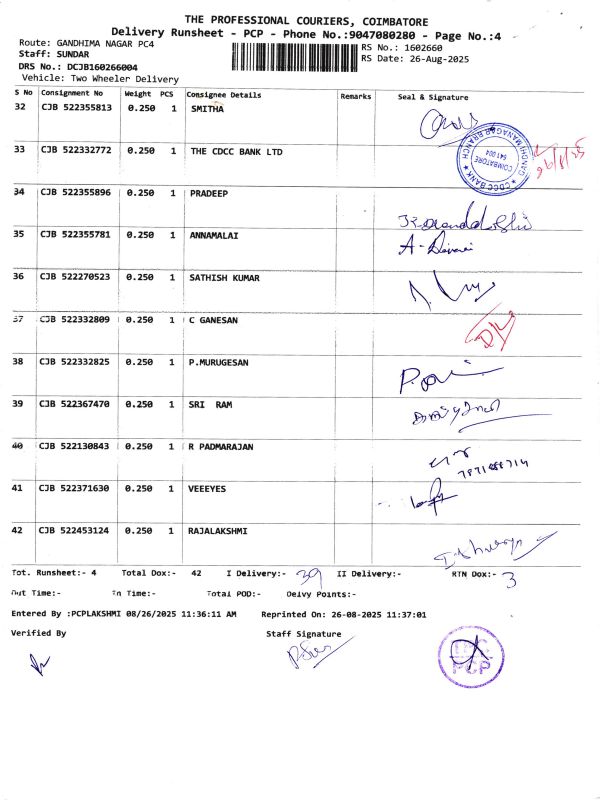 THE PROFESSIONAL COURIERS, COIMBATORE
Delivery Runsheet - PCP - Phone No.:9047080280 - Page No.:4
Route: GANDHIMA NAGAR PC4
RS No.: 1602660
Staff: SUNDAR
RS Date: 26-Aug-2025
DRS No.: DCJB160266004
Vehicle: Two Wheeler Delivery
S No Consignment No Weight PCS Consignee Details Remarks Seal & Signature
32 CJB 522355813 0.250 1 SMITHA
33 CJB 522332772 0.250 1 THE CDCC BANK LTD
CDCC BANK ★ GANDHIMANAGAR BRANCH ★
COIMBATORE
641 004
34 CJB 522355896 0.250 1 PRADEEP
35 CJB 522355781 0.250 1 ANNAMALAI
36 CJB 522270523 1 0.250 SATHISH KUMAR
37 CJB 522332809 0.250 1 C GANESAN
D/L
38 CJB 522332825 0.250 1 P.MURUGESAN
39 CJB 522367470 0.250 1 SRI RAM
40 CJB 522130843 0.250 1 R PADMARAJAN
41 CJB 522371630 0.250 1 VEEEYES
42 CJB 522453124 0.250 1 RAJALAKSHMI
Tot. Runsheet:- 4 Total Dox:- 42 I Delivery:- 39 II Delivery:- RTN Dox:- 3
Out Time:- In Time:- Total POD:- Delvy Points:-
Entered By :PCPLAKSHMI 08/26/2025 11:36:11 AM Reprinted On: 26-08-2025 11:37:01
Verified By Staff Signature
PCP